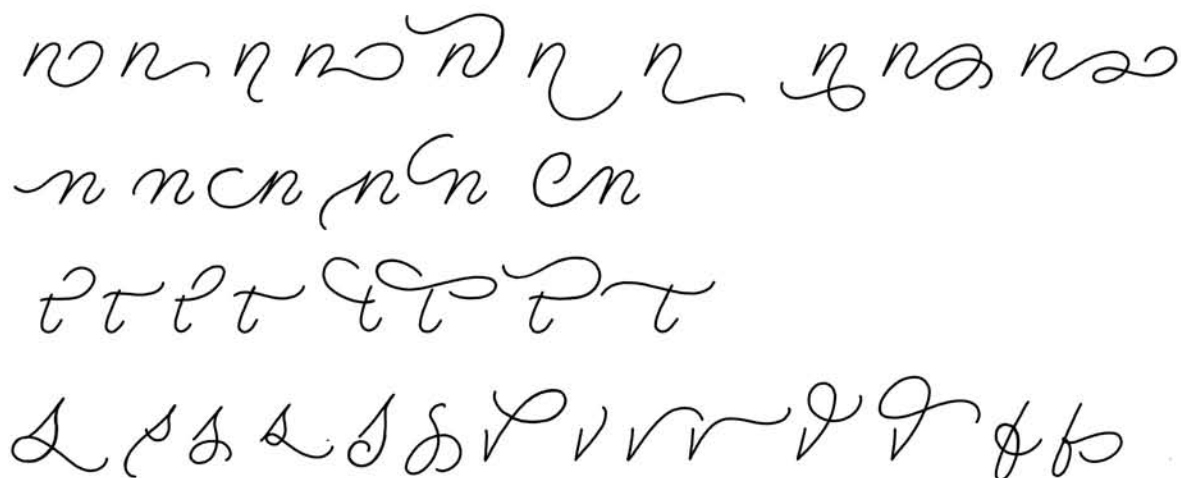 n n n n n n n n n n
n n n n n n
t t t t t t t t
s s s s s s v v v v v v f f